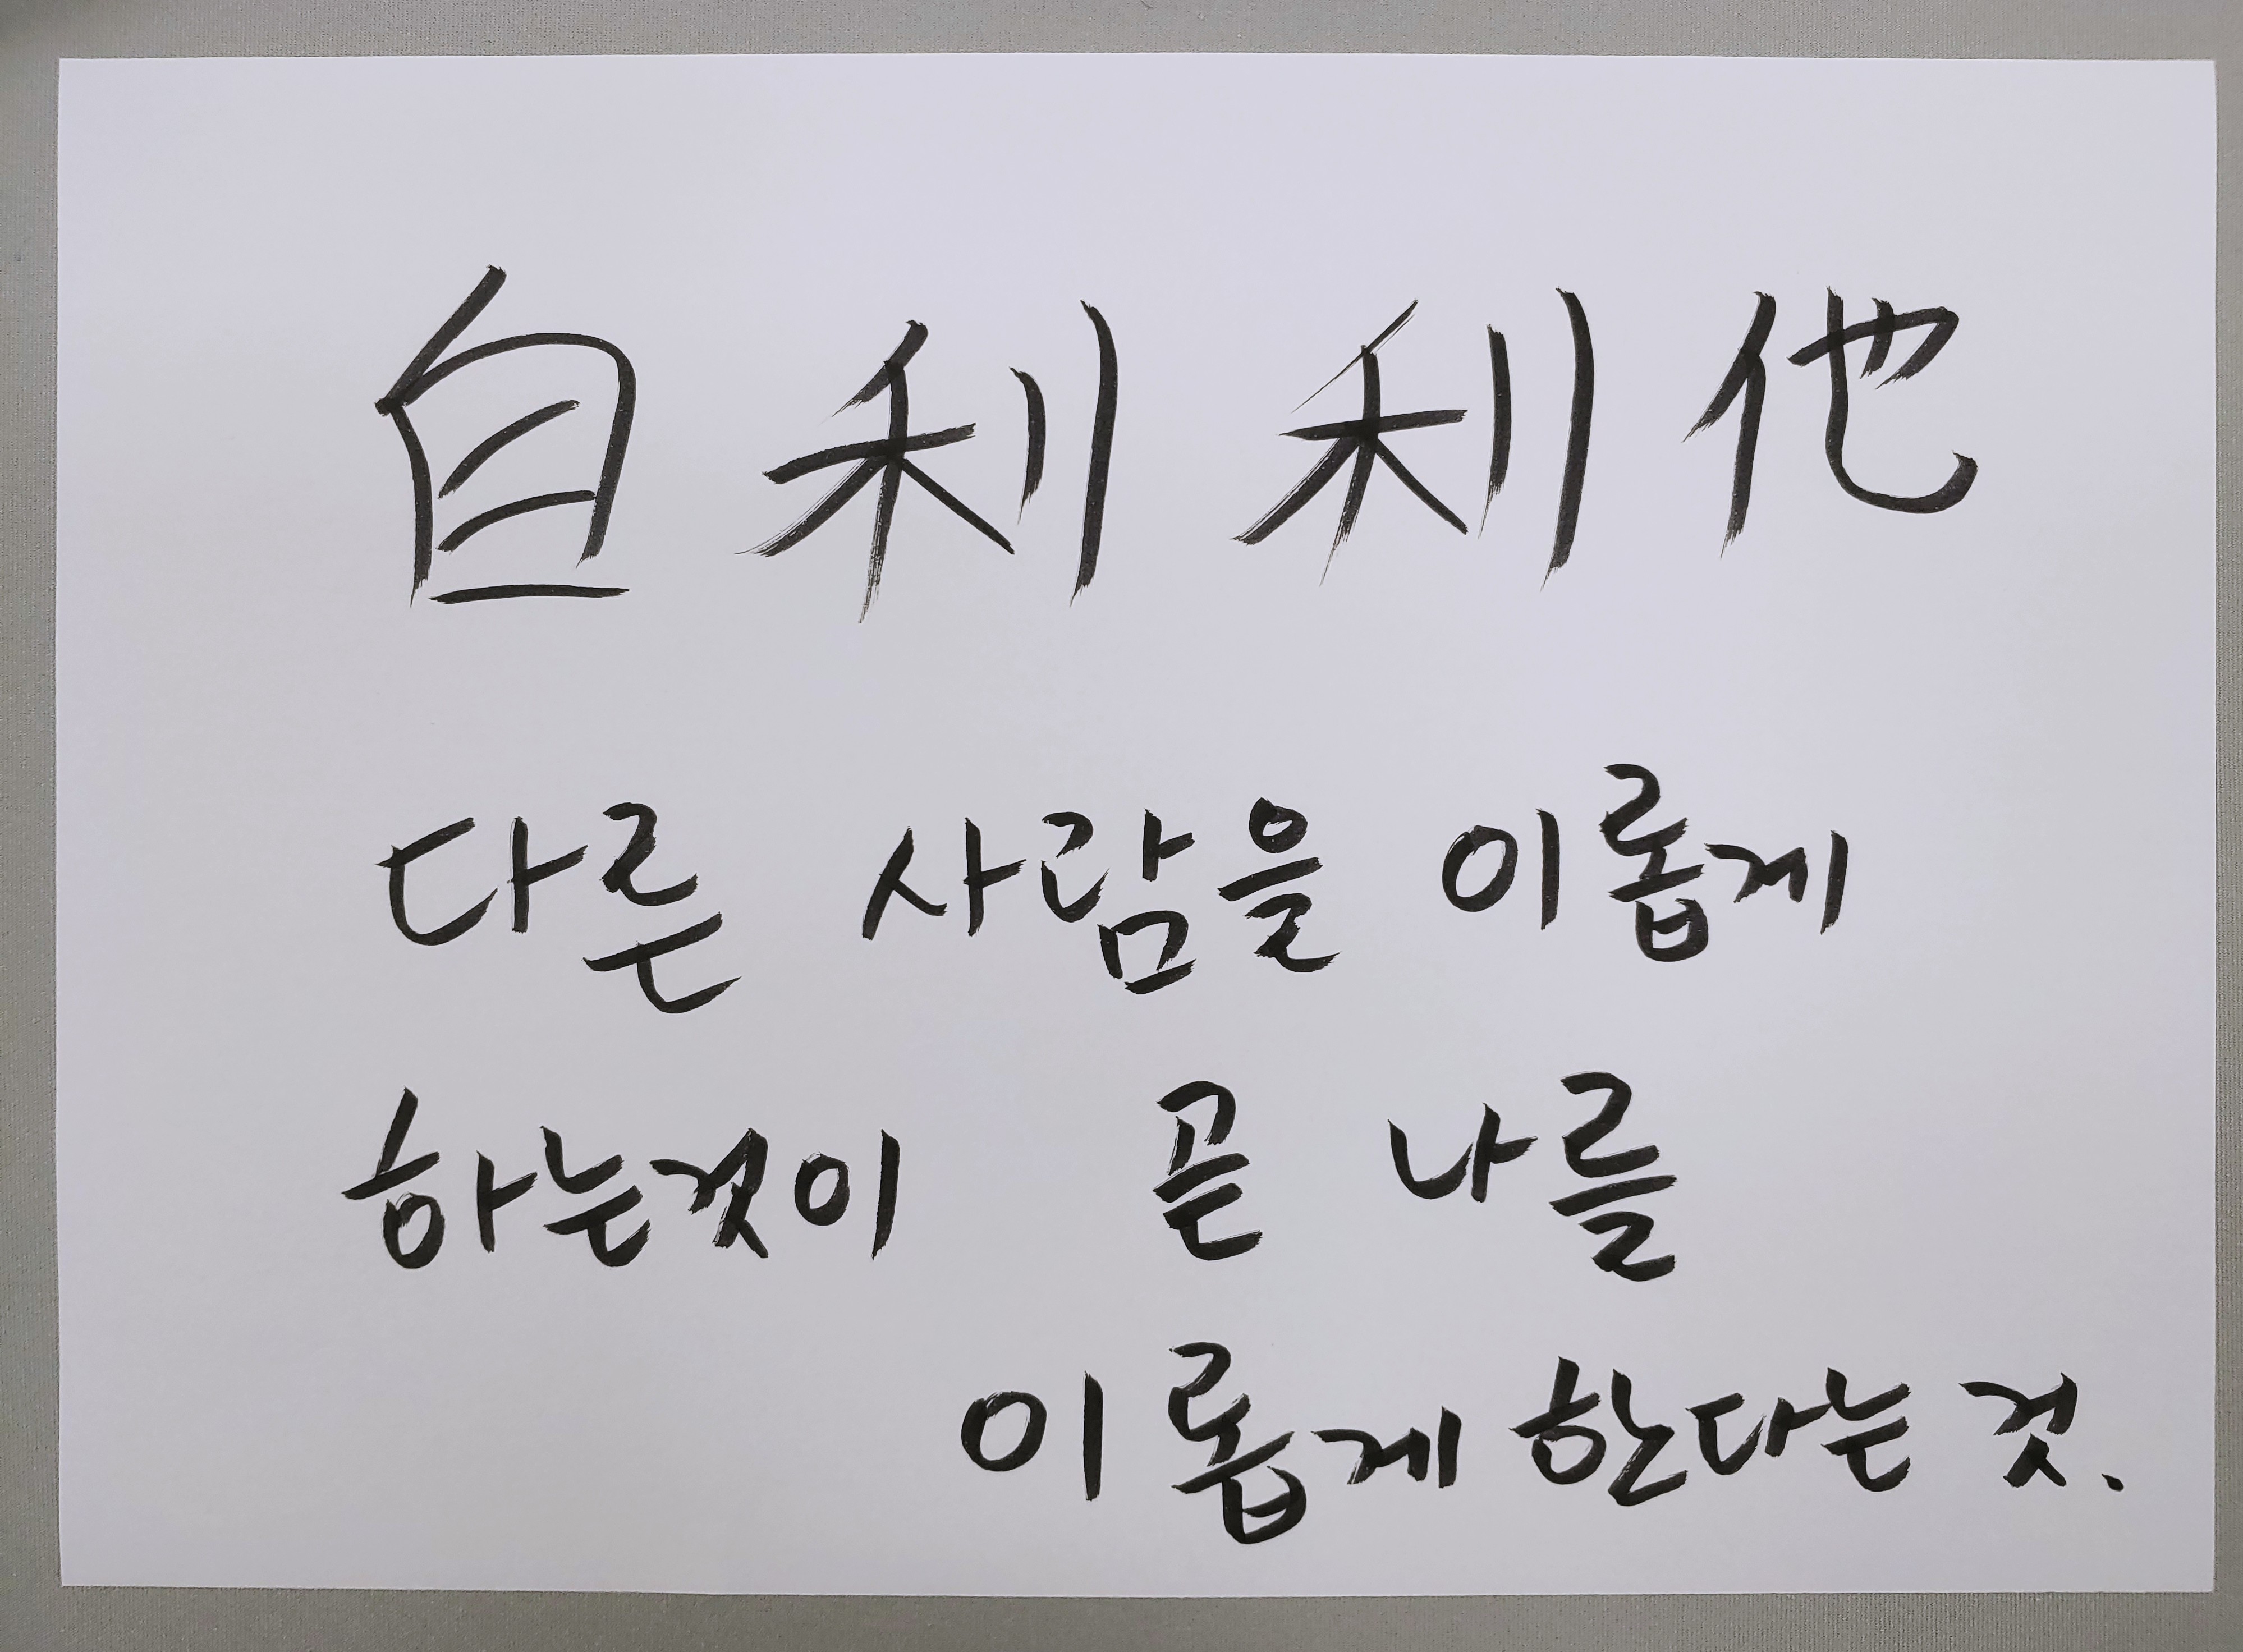 自利利他
다른 사람을 이롭게
하는것이 곧 나를
이롭게 한다는 것.